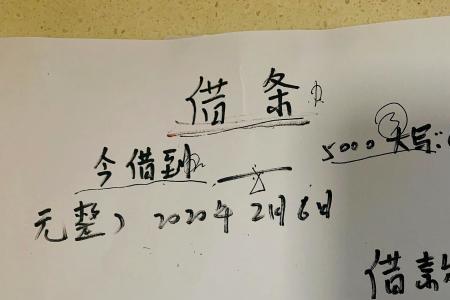 借条
今借到 5000 ③ 大写:
元整) 2020年2月6日
借